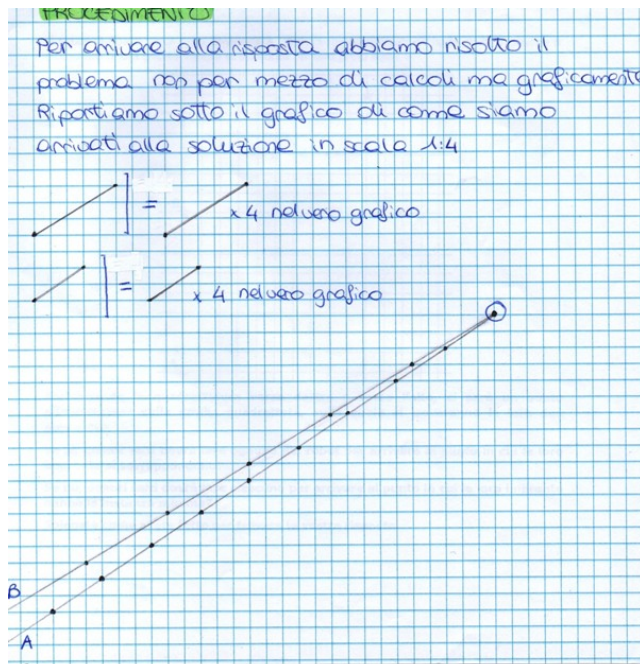 PROCEDIMENTO
Per arrivare alla risposta abbiamo risolto il
problema non per mezzo di calcoli ma graficamente
Riportiamo sotto il grafico di come siamo
arrivati alla soluzione in scala 1:4
= × 4 nel vero grafico
= × 4 nel vero grafico
B
A